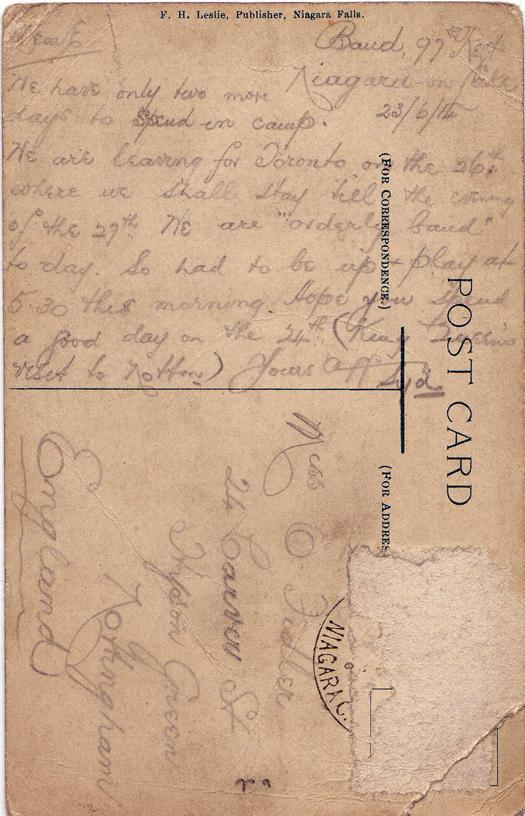 F. H. Leslie, Publisher, Niagara Falls.
Band, 97th Regt
Niagara-on-Lake
23/6/14
Dear
We have only two more
days to spend in camp.
We are leaving for Toronto on the 26th
where we shall stay till the evening
of the 27th. We are "orderly band"
to day. So had to be up & play at
5-30 this morning. Hope you spend
a good day on the 24th (King & Queen's
visit to Nottm) Yours aff Syd
POST CARD
(FOR CORRESPONDENCE.)
(FOR ADDRES
Miss O Fidler
24 Carver St
Hyson Green
Nottingham
England
NIAGARA C.